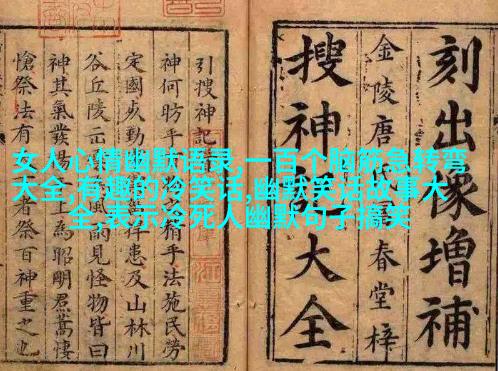 女人心情幽默语录,一百个脑筋急转弯
大全,有趣的冷笑话,幽默笑话故事大
全,表示冷死人幽默句子搞笑
刻出像增補
金陵唐氏富春堂梓
搜神記大全
引搜神記
神何昉乎 手法施民勞
定國 捍患及山林川
谷丘陵 見怪物皆曰
神其氣發揚 上為昭明焄蒿悽
愴祭法有 者祭百神重之也